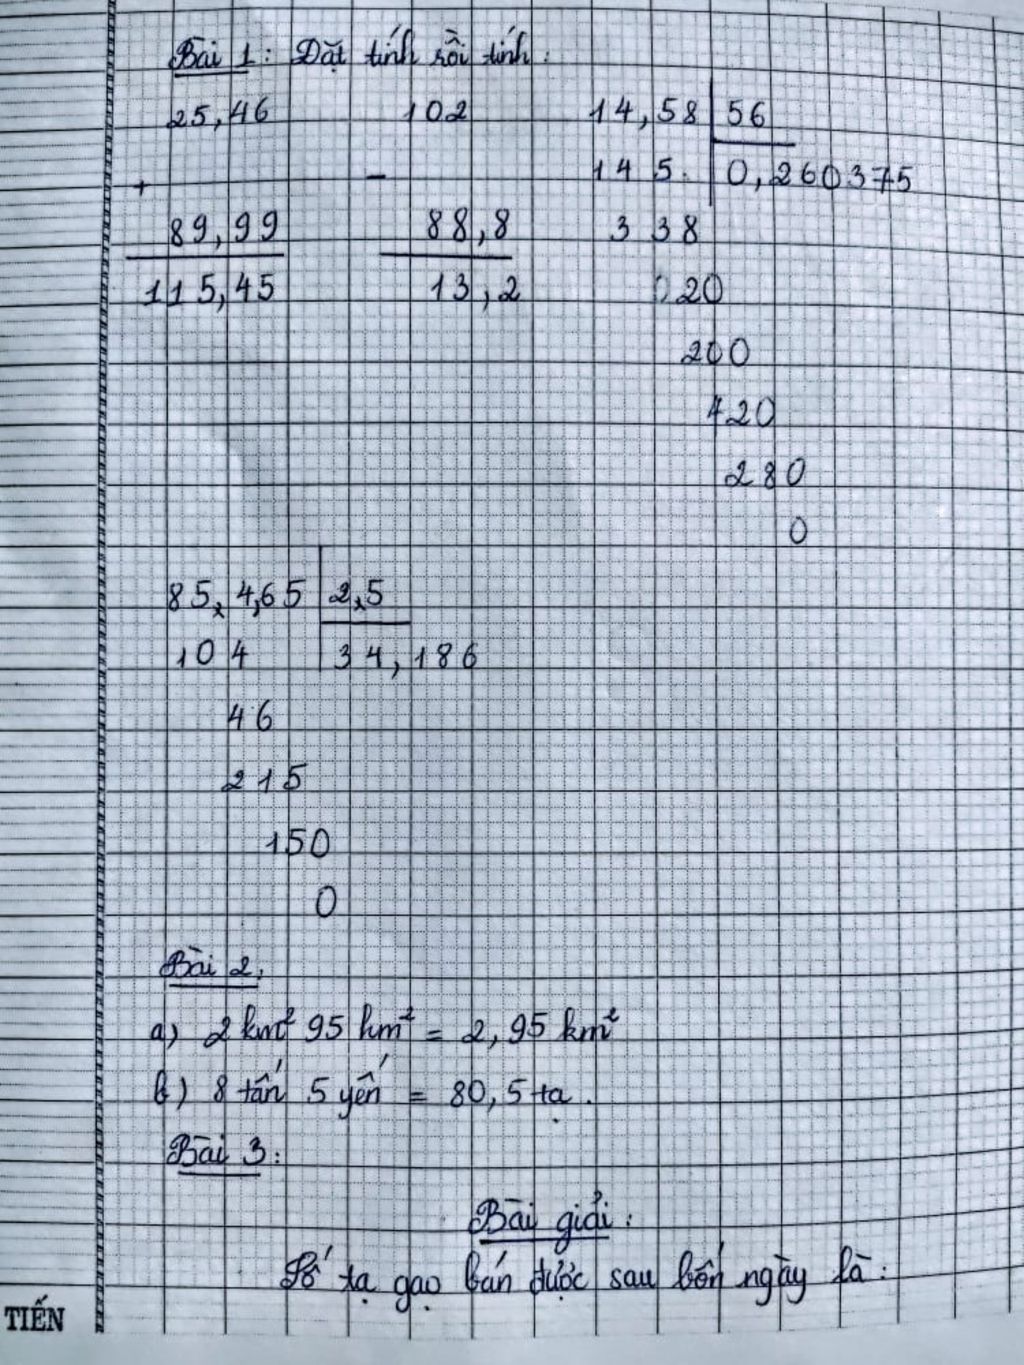 Bài 1: Đặt tính rồi tính:
25,46 102 14,58 56
+ - 145 0,260375
89,99 88,8 338
115,45 13,2 020
200
420
280
0
85,4,65 2,5
104 34,186
46
215
150
0
Bài 2:
a) 2 km² 95 hm² = 2,95 km²
b) 8 tấn 5 yến = 80,5 tạ.
Bài 3:
Bài giải:
Số tạ gạo bán được sau bốn ngày là:
TIẾN